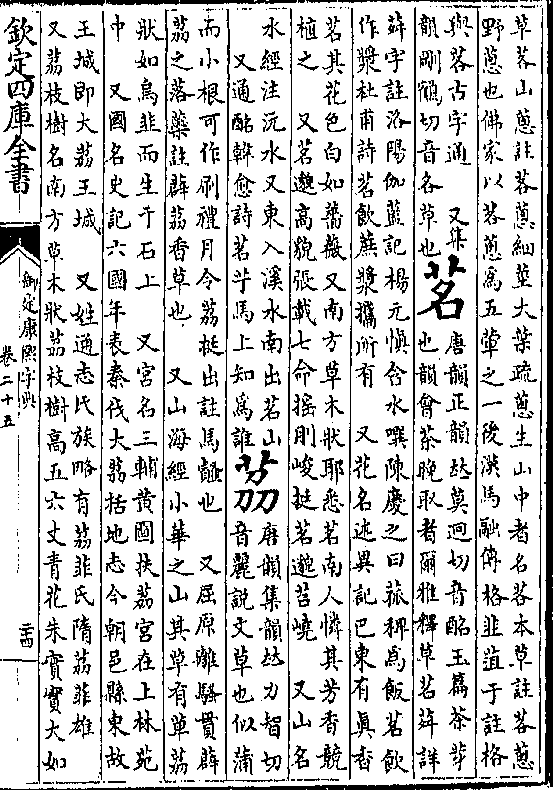 草茖山蔥註茖蔥細莖大葉疏蔥生山中者名茖本草註茖蔥
野蔥也佛家以茖蔥為五葷之一後漢馬融傳格韭菹于註格
與茖古字通 又集
韻剛鶴切音各草也
茗
唐韻正韻𠀤莫迥切音酩玉篇茶芽
也韻會茶晚取者爾雅釋草茗葋詳
葋字註洛陽伽藍記楊元慎含水噀陳慶之曰菰稗為飯茗飲
作漿杜甫詩茗飲蔗漿攜所有 又花名述異記巴東有真香
茗其花色白如薔薇又南方草木狀耶悉茗南人憐其芳香競
植之 又茗邈高貌張載七命搖刖峻挺茗邈苕嶢 又山名
水經注沅水又東入溪水南出茗山
又通酩韓愈詩茗艼馬上知為誰
茘
唐韻集韻𠀤力智切
音麗說文草也似蒲
而小根可作刷禮月令荔挺出註馬䪥也 又屈原離騷貫薜
荔之落蘂註薜荔香草也 又山海經小華之山其草有萆荔
狀如烏韭而生于石上 又宮名三輔黃圖扶荔宮在上林苑
中 又國名史記六國年表秦伐大荔括地志今朝邑縣東故
王城即大荔王城 又姓通志氏族略有荔菲氏隋荔菲雄
又荔枝樹名南方草木狀荔枝樹高五六丈青花朱實實大如
欽定四庫全書
御定康熙字典
卷二十五
二十四